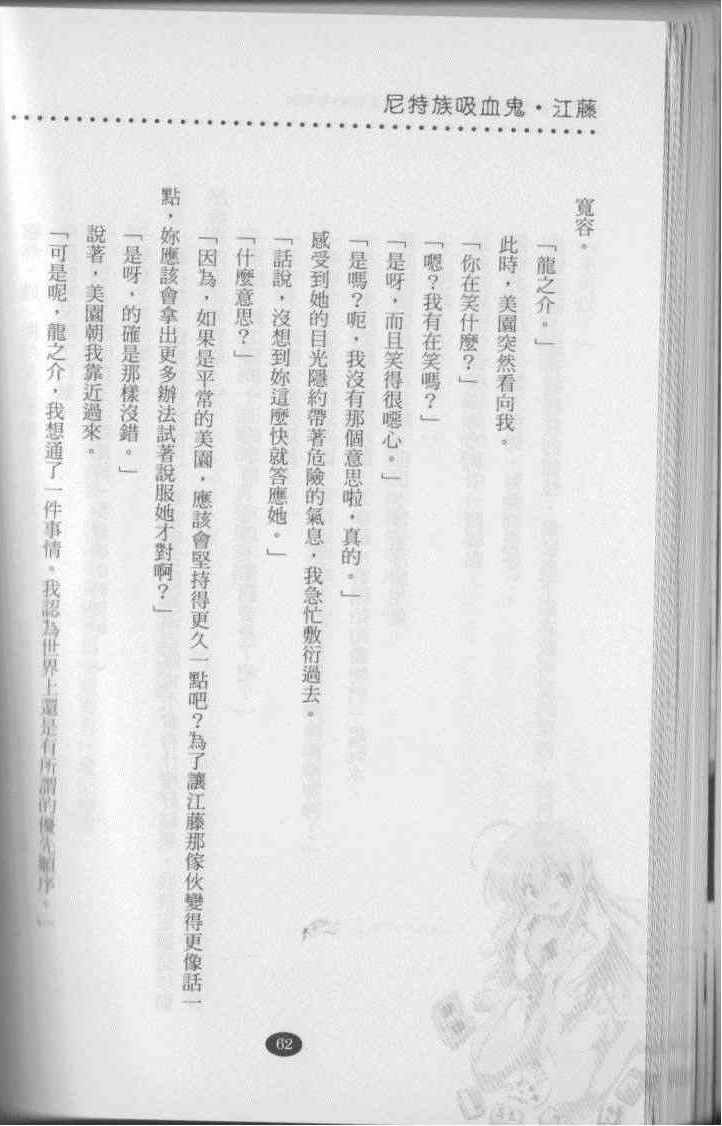 尼特族吸血鬼・江藤
寬容。
「龍之介。」
此時，美園突然看向我。
「你在笑什麼？」
「嗯？我有在笑嗎？」
「是呀，而且笑得很噁心。」
「是嗎？呃，我沒有那個意思啦，真的。」
感受到她的目光隱約帶著危險的氣息，我急忙敷衍過去。
「話說，沒想到妳這麼快就答應她。」
「什麼意思？」
「因為，如果是平常的美園，應該會堅持得更久一點吧？為了讓江藤那傢伙變得更像話一
點，妳應該會拿出更多辦法試著說服她才對啊？」
「是呀，的確是那樣沒錯。」
說著，美園朝我靠近過來。
「可是呢，龍之介，我想通了一件事情。我認為世界上還是有所謂的優先順序。」
62